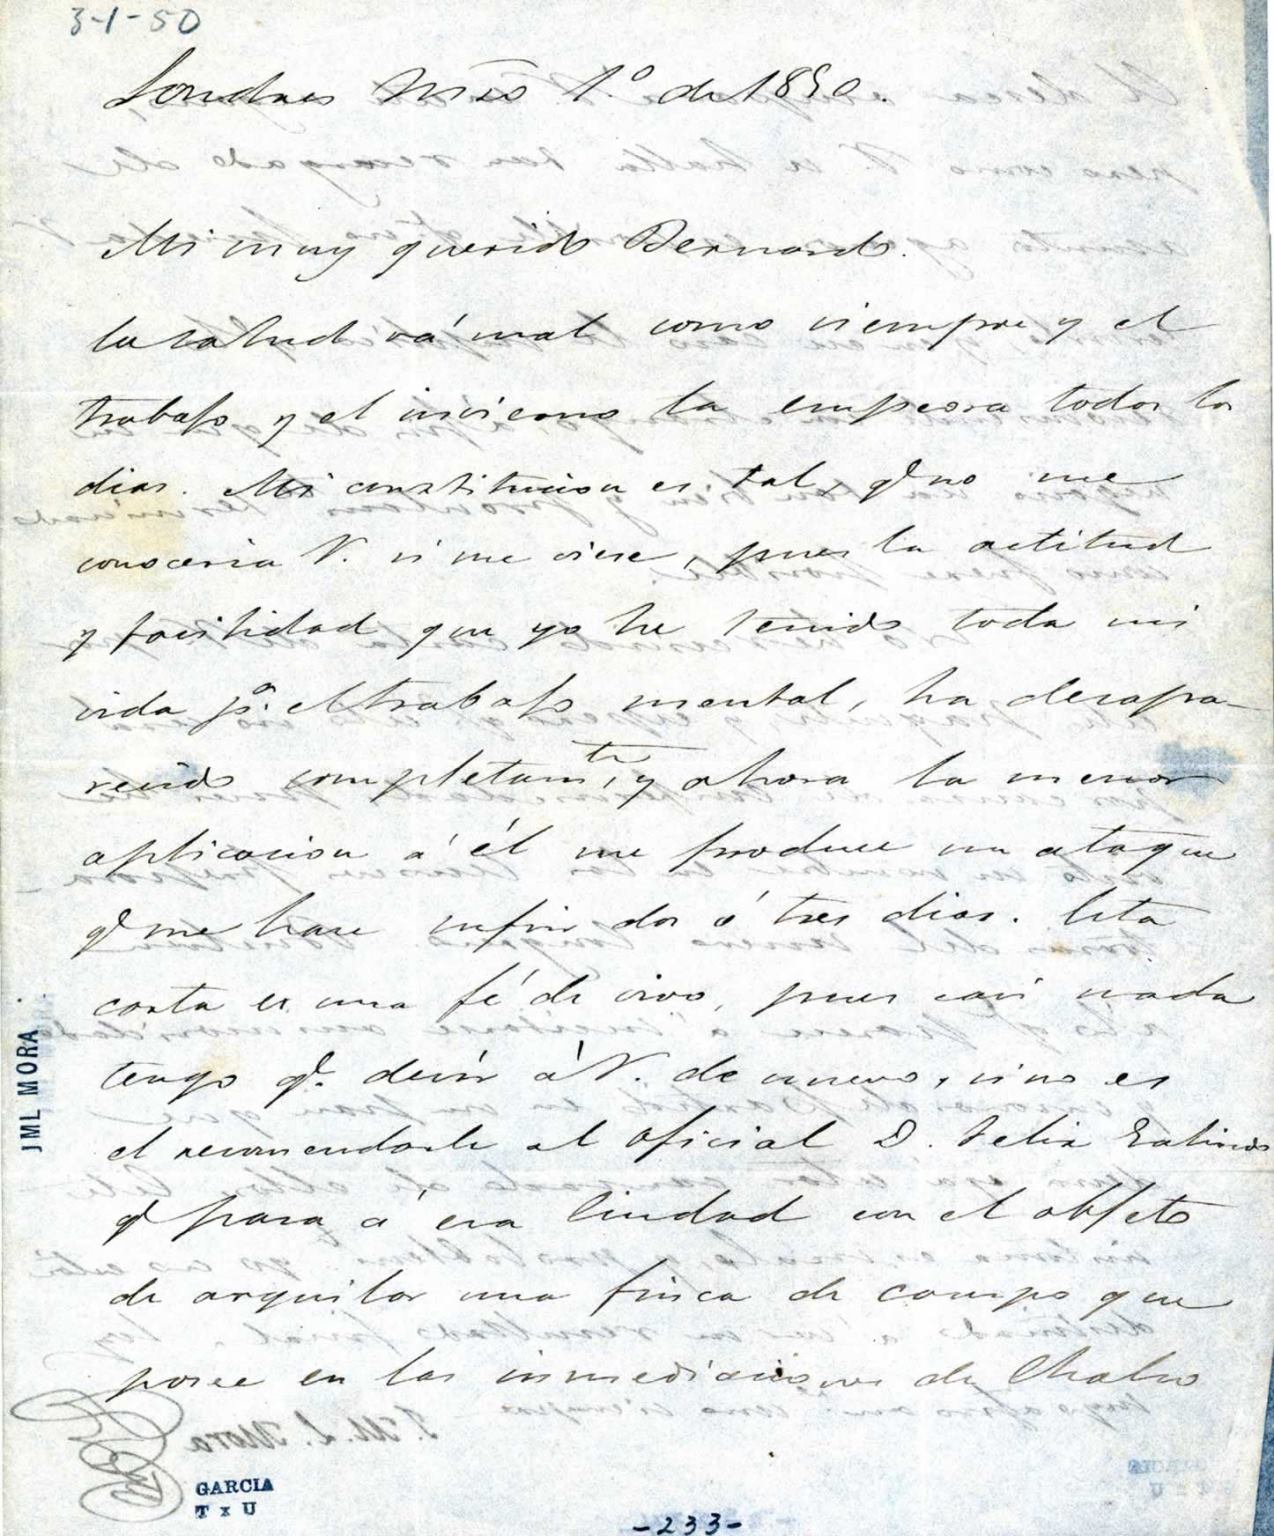 3-1-50
Londres Mzo 1.º de 1850.
Mi muy querido Bernardo.
la salud vá mal como siempre y el
trabajo y el invierno la empeora todos los
dias. Mi constitucion es tal, q.e no me
conoceria V. si me viese, pues la actitud
y facilidad que yo he tenido toda mi
vida p.a el trabajo mental, ha desapa-
recido completam.te, y ahora la menor
aplicacion á él me produce un ataque
q.e me hace sufrir dos ó tres dias. Esta
carta es una fé de vivo, pues casi nada
tengo q.e decir à V. de nuevo, si no es
el recomendarle al oficial D. Felix
q.e pasa á esa Ciudad con el objeto
de arquilar una finca de campo que
posee en las inmediaciones de Chalco
J. M. L. Mora
JML MORA
GARCIA
T x U
-233-